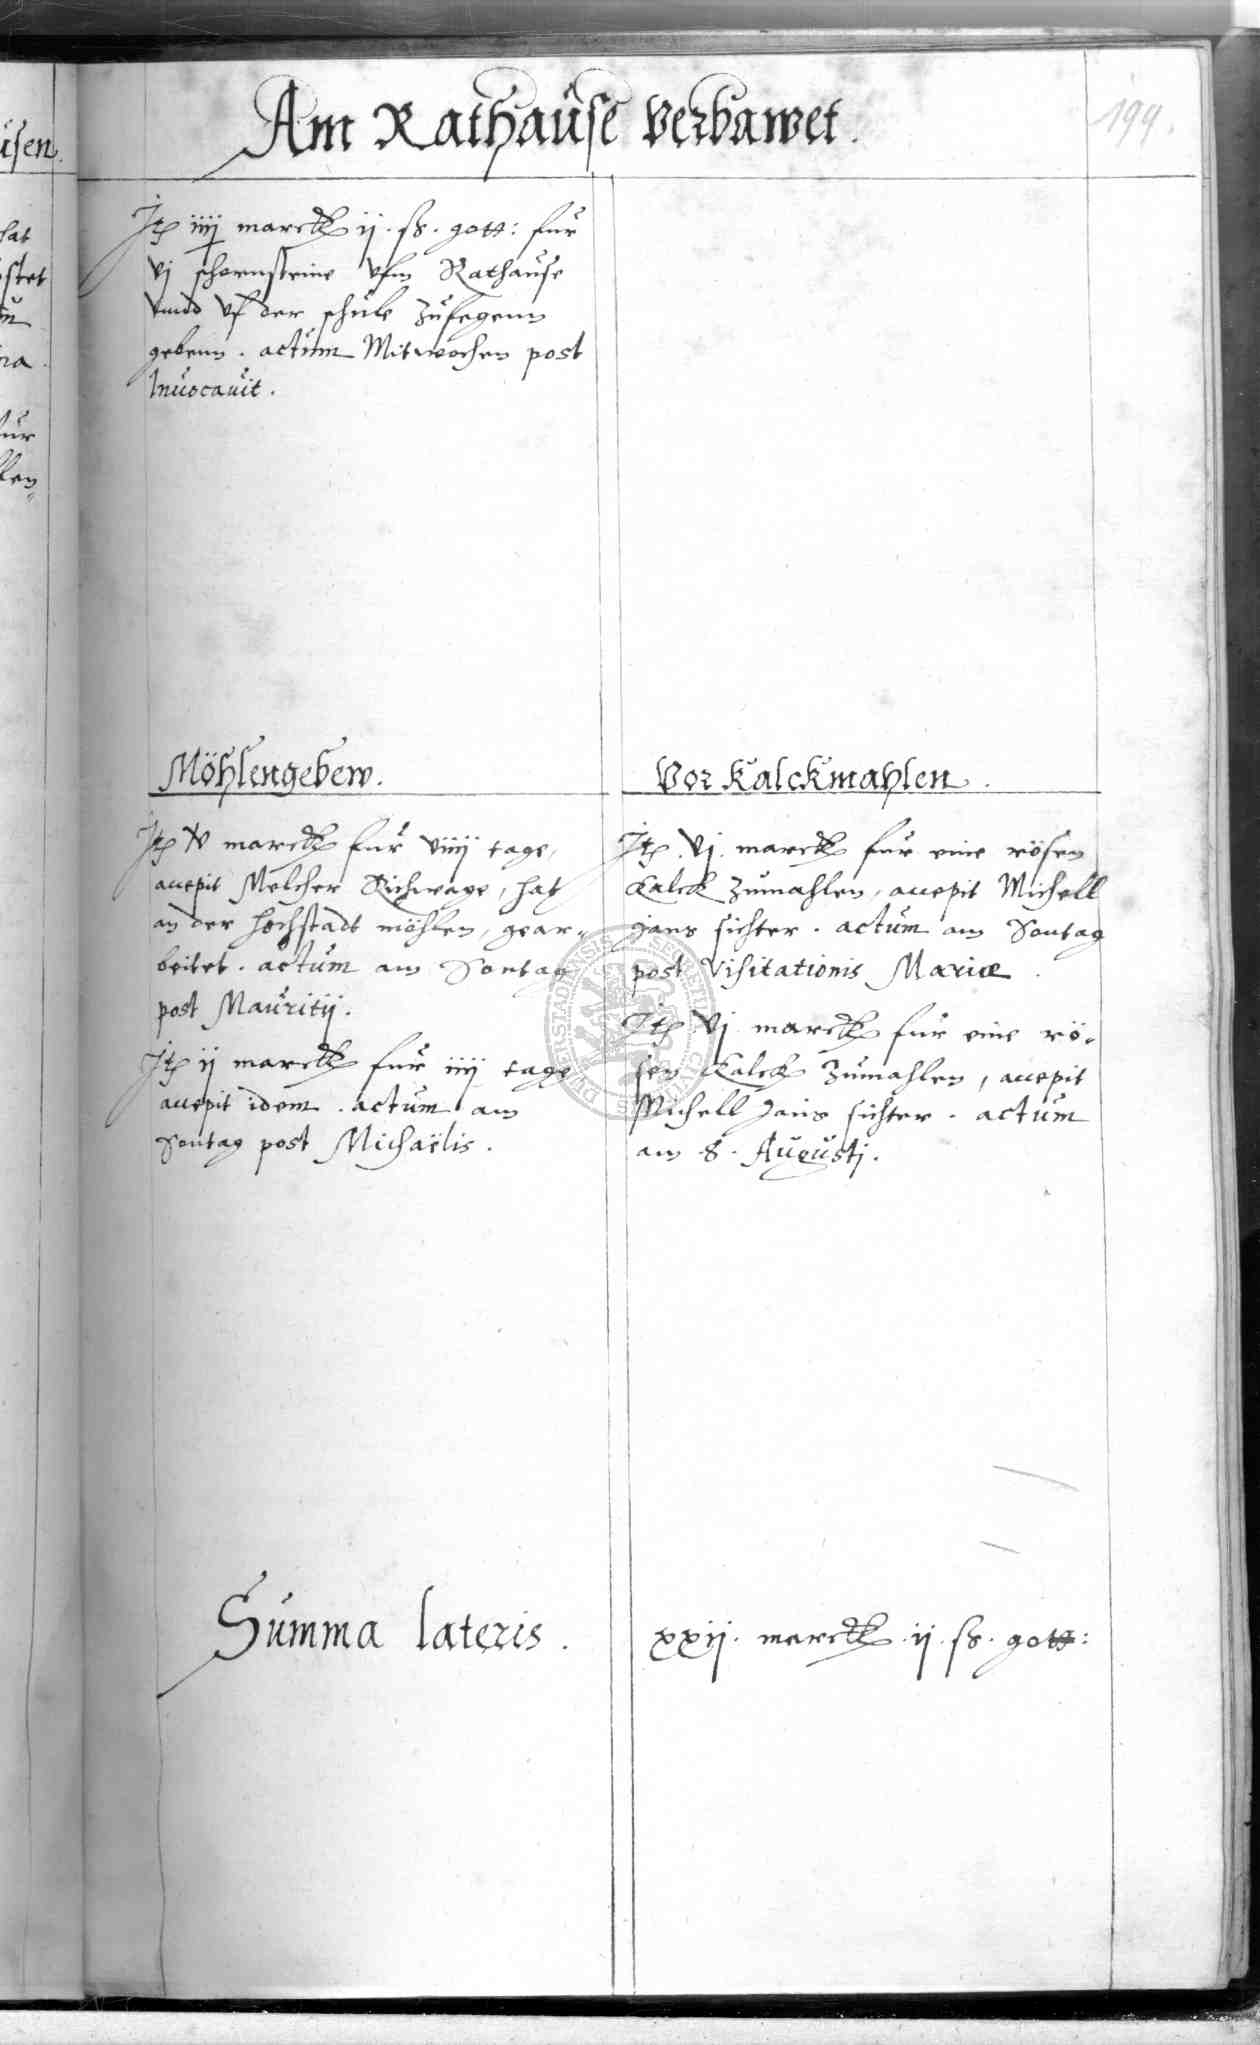 Am Rathause verbawet.
199.
Jtem iiij marck ij. ß. gott: fur
vj schornsteine vfm Rathause
vnnd vf der schule zufegenn
gebenn. actum Mitwochen post
Inuocauit.
Möhlengebew.
Jtem v marck fur viiij tage,
accepit Melcher Richwage, hat
an der hochstadt möhlen, gear-
beitet. actum am Sontag
post Mauritij.
Jtem ij marck fur iiij tage
accepit idem. actum am
Sontag post Michaëlis.
Vor Kalckmahlen.
Jtem. vj. marck fur eine rösen
Kalck zumahlen, accepit Michell
Jans sichter. actum am Sontag
post Visitationis Mariæ.
Jtem. vj. marck fur eine rö-
sen Kalck zumahlen, accepit
Michell Jans sichter. actum
am 8. Augustj.
Summa lateris.
xxij. marck. ij. ß. gott: